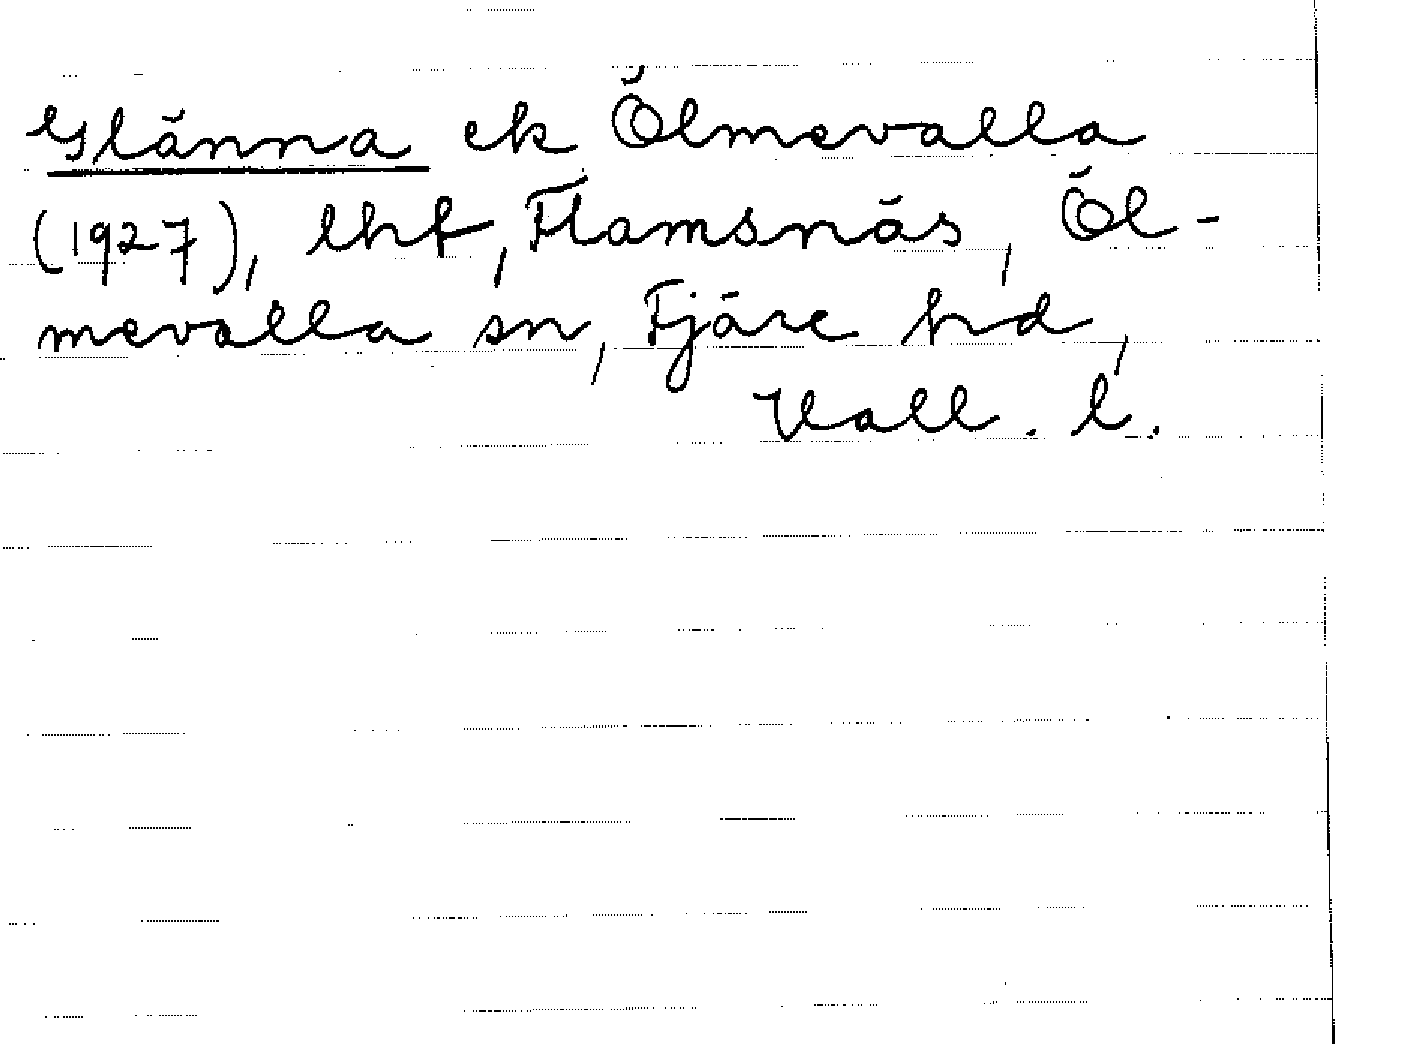 Glänna ek Ölmevalla
(1927), lhf, Flamsnäs, Öl-
mevalla sn, Fjäre hd,
Hall. l.